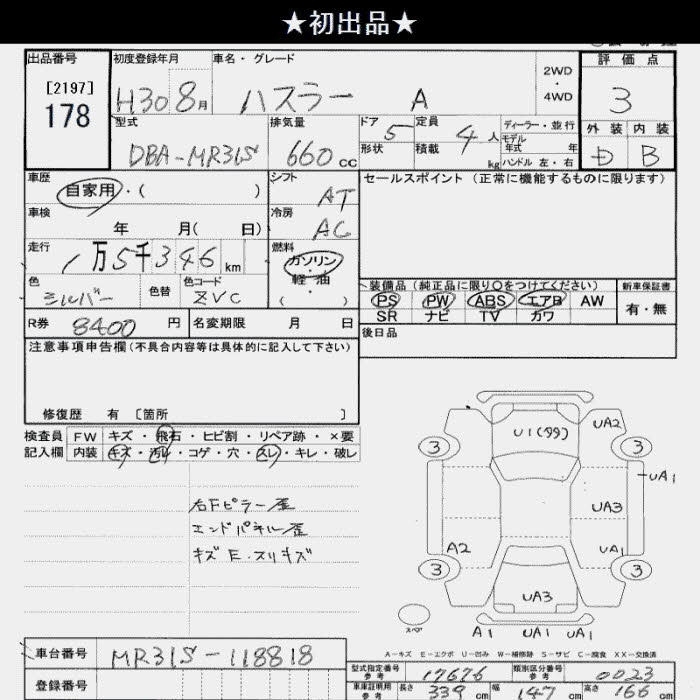 ★初出品★
出品番号 初度登録年月 車名・グレード 2WD・4WD 評価点
[2197] 178 H30 8月 ハスラー A 3
外装 内装
D B
型式 排気量 ドア 定員 ディーラー・並行
DBA-MR31S 660cc 5 4人 モデル年式 年
形状 積載 kg ハンドル 左・右
車歴 シフト セールスポイント(正常に機能するものに限ります)
自家用・( ) AT
車検 冷房
年 月( 日) AC
走行 燃料
1万5千346km ガソリン・軽油
( )
色 色替 色コード 装備品(純正品に限り○をつけてください) 新車保証書
シルバー ZVC PS PW ABS エアB AW 有・無
SR ナビ TV カワ
R券 8400円 名変期限 月 日 後日品
注意事項申告欄(不具合内容等は具体的に記入して下さい)
修復歴 有 [箇所 ]
検査員 FW キズ・飛石・ヒビ割・リペア跡・×要
記入欄 内装 キズ・汚れ・コゲ・穴・スレ・キレ・破レ
右Fピラー歪
エンドパネル歪
キズE・スリキズ
U1(99) UA2
3 3
UA1
UA3
A2 UA1
3 3
UA3
スペア
A1 UA1 UA1
A-キズ E-エクボ U-凹み W-補修跡 S-サビ C-腐食 XX-交換済
車台番号 MR31S-118818
型式指定番号 参考 17676 類別区分番号 参考 0023
登録番号
車庫証明用 参考 長さ 339cm 幅 147cm 高さ 166cm